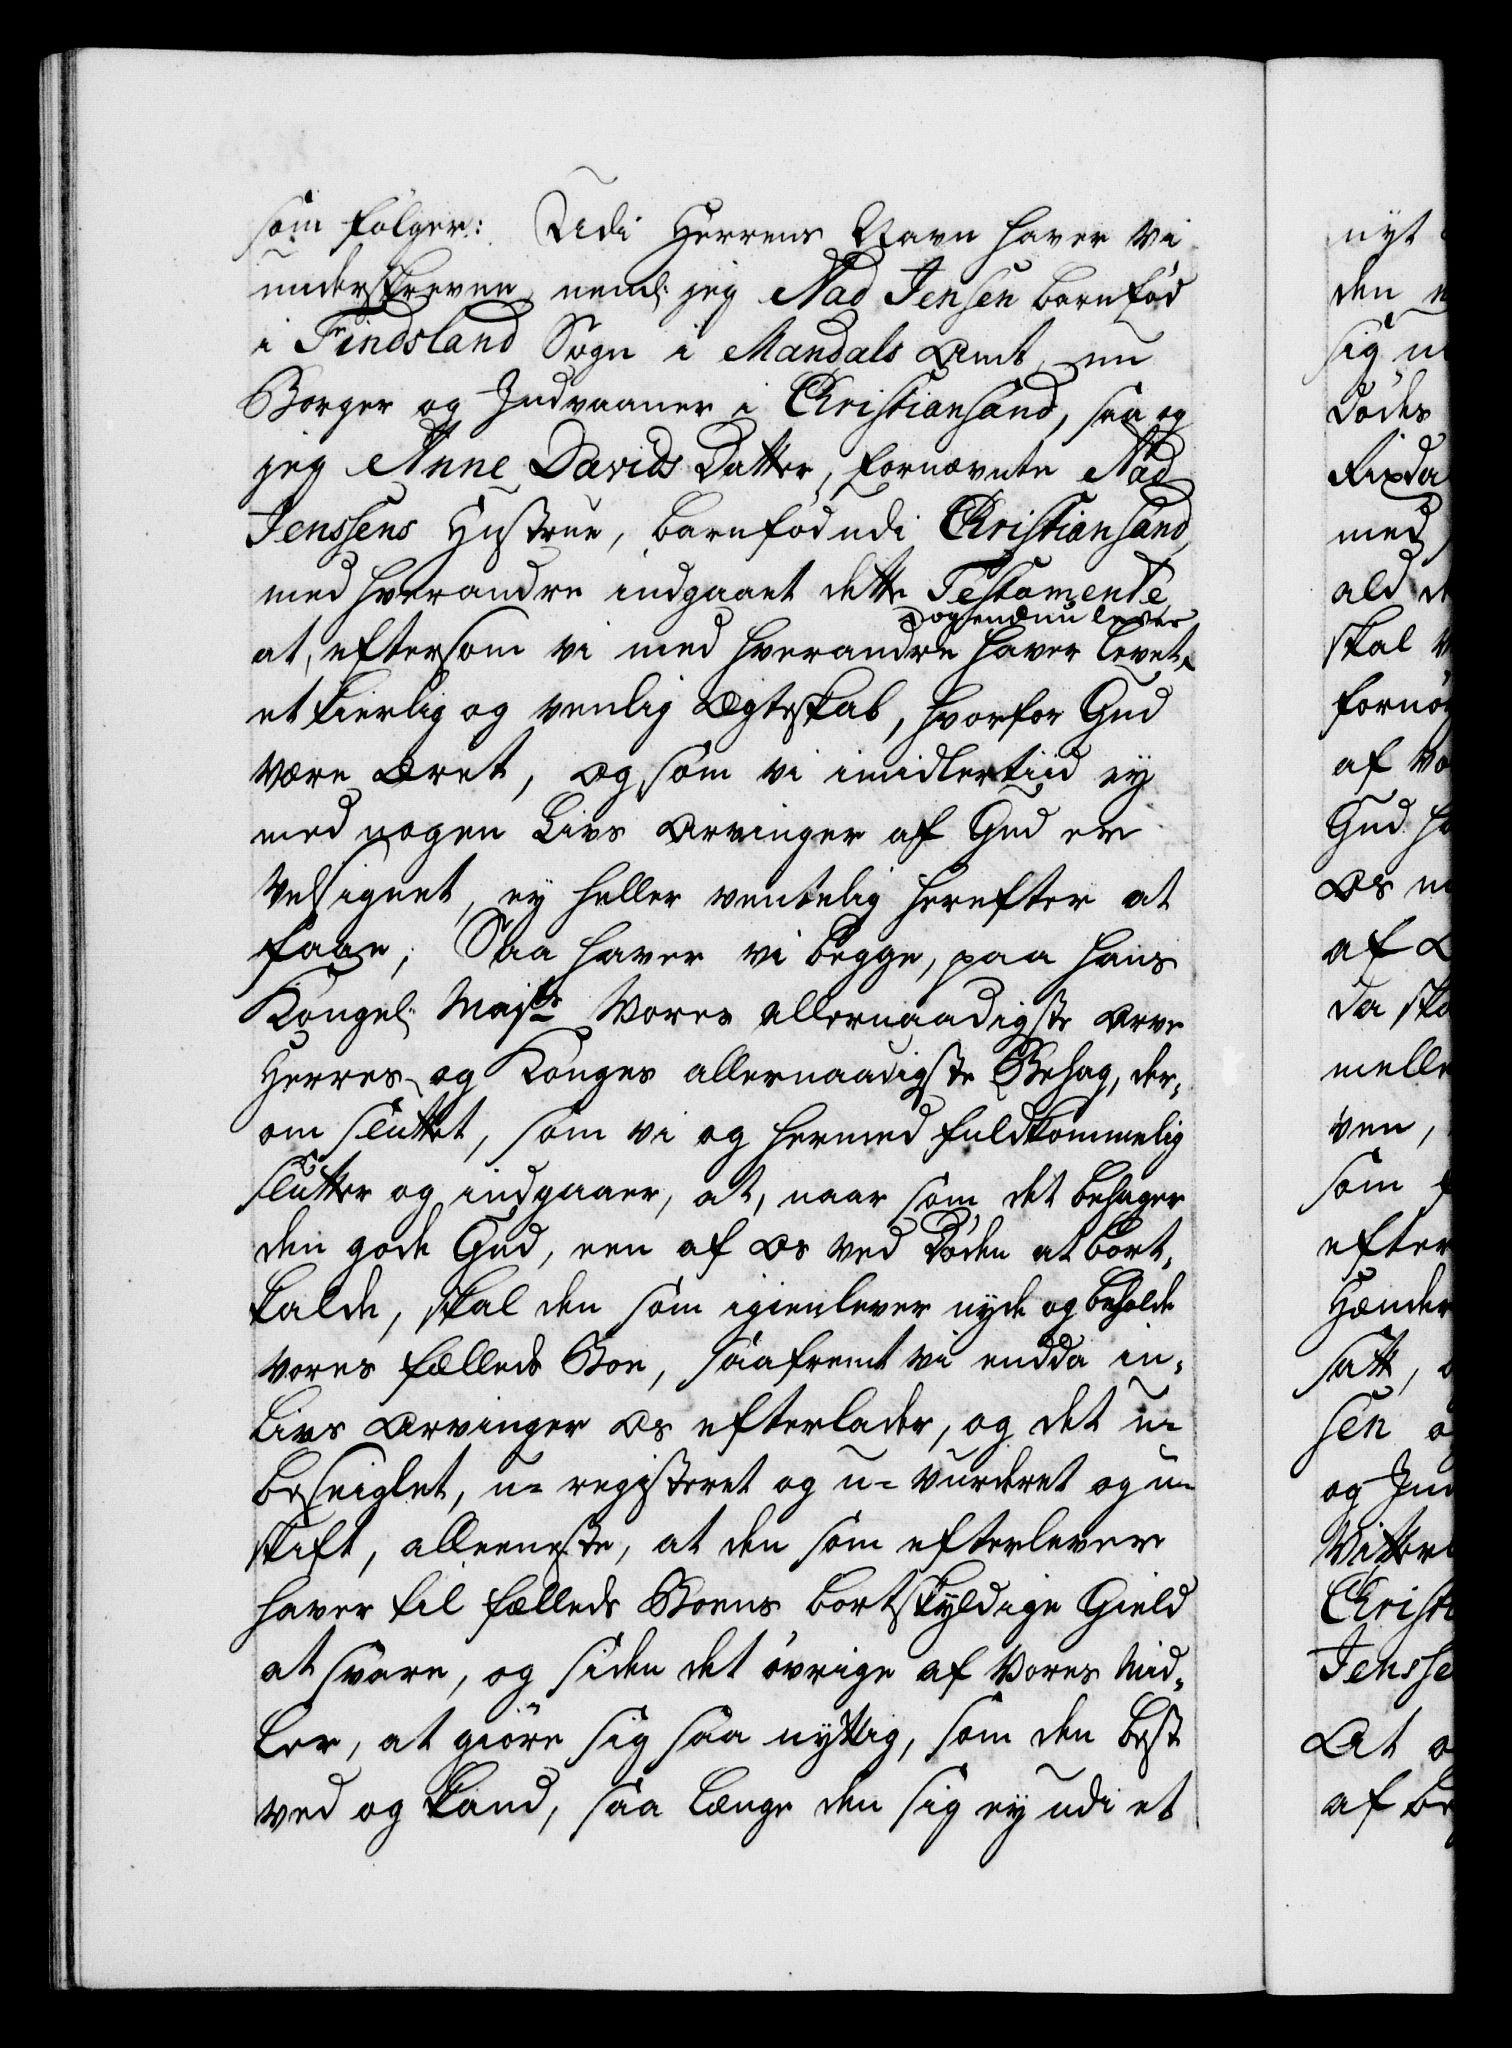 som følger: Udi Herrens Navn haver vi
underskrevne, neml: jeg Aad Jensen barnfød
i Findsland Sogn i Mandals Amt, nu
Borger og Indvaaner i Christiansand, saa og
jeg Anne Davids Datter, fornævnte Aad
Jenssens Hustrue, barnfød udi Christiansand,
med hverandre indgaaet dette Testamente
og endnu lever
at, eftersom vi med hverandre haver levet,
et kierlig og venlig Ægteskab, hvorfor Gud
være Æret, og som vi imidlertiid ey
med nogen Livs Arvinger af Gud er
velsignet, ey heller ventelig herefter at
faae; Saa haver vi begge, paa Hans
Kongel: Majts Vores allernaadigste Arve
Herres og Konges allernaadigste Behag, der-
om sluttet, som vi og hermed fuldkommelig
slutter og indgaaer, at, naar som det behager
den gode Gud, een af Os ved Døden at bort-
kalde, skal den som igienlever nyde og beholde
vores fælleds Boe, saafremt vi endda in-
Livs Arvinger Os efterlader, og det u-
beseiglet, u- registeret og u- vurderet og u-
skift, alleeneste, at den som efterlever
haver til fælleds Boens bortskyldige Gield
at svare, og siden det øvrige af Vores Mid-
ler, at giøre sig saa nyttig, som den best
ved og kand, saa længe den sig ey udi et
nyt
den
sig
Døds
Rixda
med
ald
skal
fornøy
af
Gud
Os
af
da ska
melle
ven,
som
efter
Hænder
satt,
sen
og Ind
Vitterl
Christi
Jensse
At
af